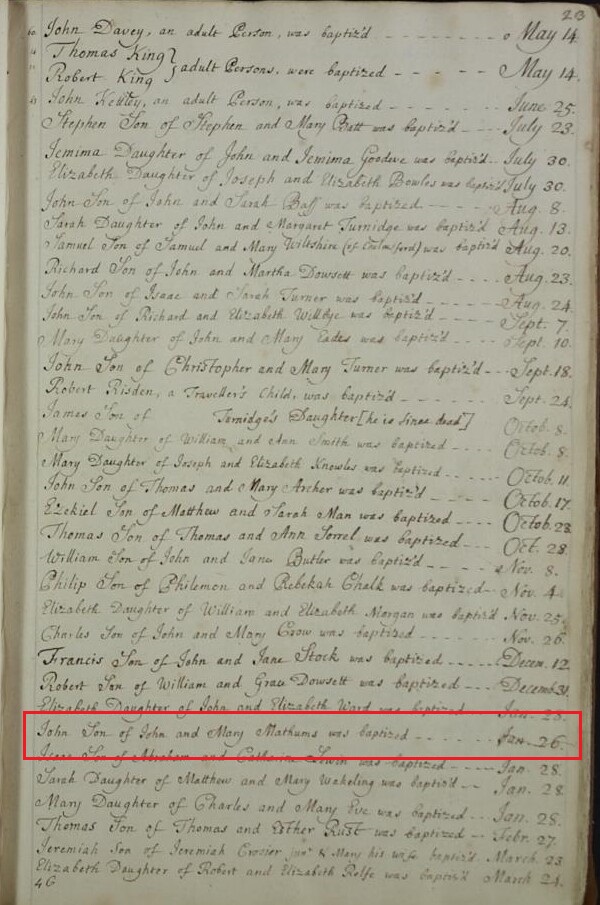 23
60 John Davey, an adult Person, was baptiz'd - - - - - - - - o May 14.
Thomas King
Robert King } adult Persons, were baptized - - - - - May 14.
John Kelley, an adult Person, was baptized - - - - June 25.
Stephen Son of Stephen and Mary Batt was baptiz'd - - - July 23.
Jemima Daughter of John and Jemima Goodwe was baptiz'd - - July 30.
Elizabeth Daughter of Joseph and Elizabeth Bowles was baptiz'd July 30.
John Son of John and Sarah Bass was baptized - - - - Aug. 8.
Sarah Daughter of John and Margaret Turnidge was baptiz'd Aug. 13.
Samuel Son of Samuel and Mary Wiltshire (of Chelmsford) was baptiz'd Aug. 20.
Richard Son of John and Martha Dowsett was baptized - - - - Aug. 23.
John Son of Isaac and Sarah Turner was baptized - - - - Aug. 24.
John Son of Richard and Elizabeth Willbye was baptized - - - - Sept. 7.
Mary Daughter of John and Mary Eades was baptiz'd - - - - Sept. 10.
John Son of Christopher and Mary Turner was baptiz'd - - Sept. 18.
Robert Risden, a Traveller's Child, was baptiz'd - - - - Sept. 24.
James Son of Turnidge's Daughter [he is since dead] Octob. 8.
Mary Daughter of William and Ann Smith was baptized - - - - Octob. 8.
Mary Daughter of Joseph and Elizabeth Knowles was baptized - - - - Octob. 11.
John Son of Thomas and Mary Archer was baptiz'd - - - - Octob. 17.
Ezekiel Son of Matthew and Sarah Man was baptized - - - - Octob. 28
Thomas Son of Thomas and Ann Sorrel was baptized - - - - Oct. 28.
William Son of John and Jane Butler was baptiz'd - - - - Nov. 8.
Philip Son of Philemon and Rebekah Chalk was baptized - - Nov. 4.
Elizabeth Daughter of William and Elizabeth Morgan was baptiz'd Nov. 25.
Charles Son of John and Mary Crow was baptized - - - - Nov. 26.
Francis Son of John and Jane Stock was baptized - - - - Decem. 12.
Robert Son of William and Grace Dowsett was baptized - - - - Decemb 31.
Elizabeth Daughter of John and Elizabeth Ward was baptized - - - - Jan.
John Son of John and Mary Mathums was baptized - - - - Jan. 26.
Isaac Son of Abraham and Catherine Lewin was baptized - - - - Jan. 28.
Sarah Daughter of Matthew and Mary Wakeling was baptiz'd - - Jan. 28
Mary Daughter of Charles and Mary Eve was baptized - - - - Jan. 28.
Thomas Son of Thomas and Esther Rust was baptized - - Febr. 27.
Jeremiah Son of Jeremiah Crosier junr & Mary his wife baptiz'd. March 23
Elizabeth Daughter of Robert and Elizabeth Relfe was baptiz'd March 24.
46